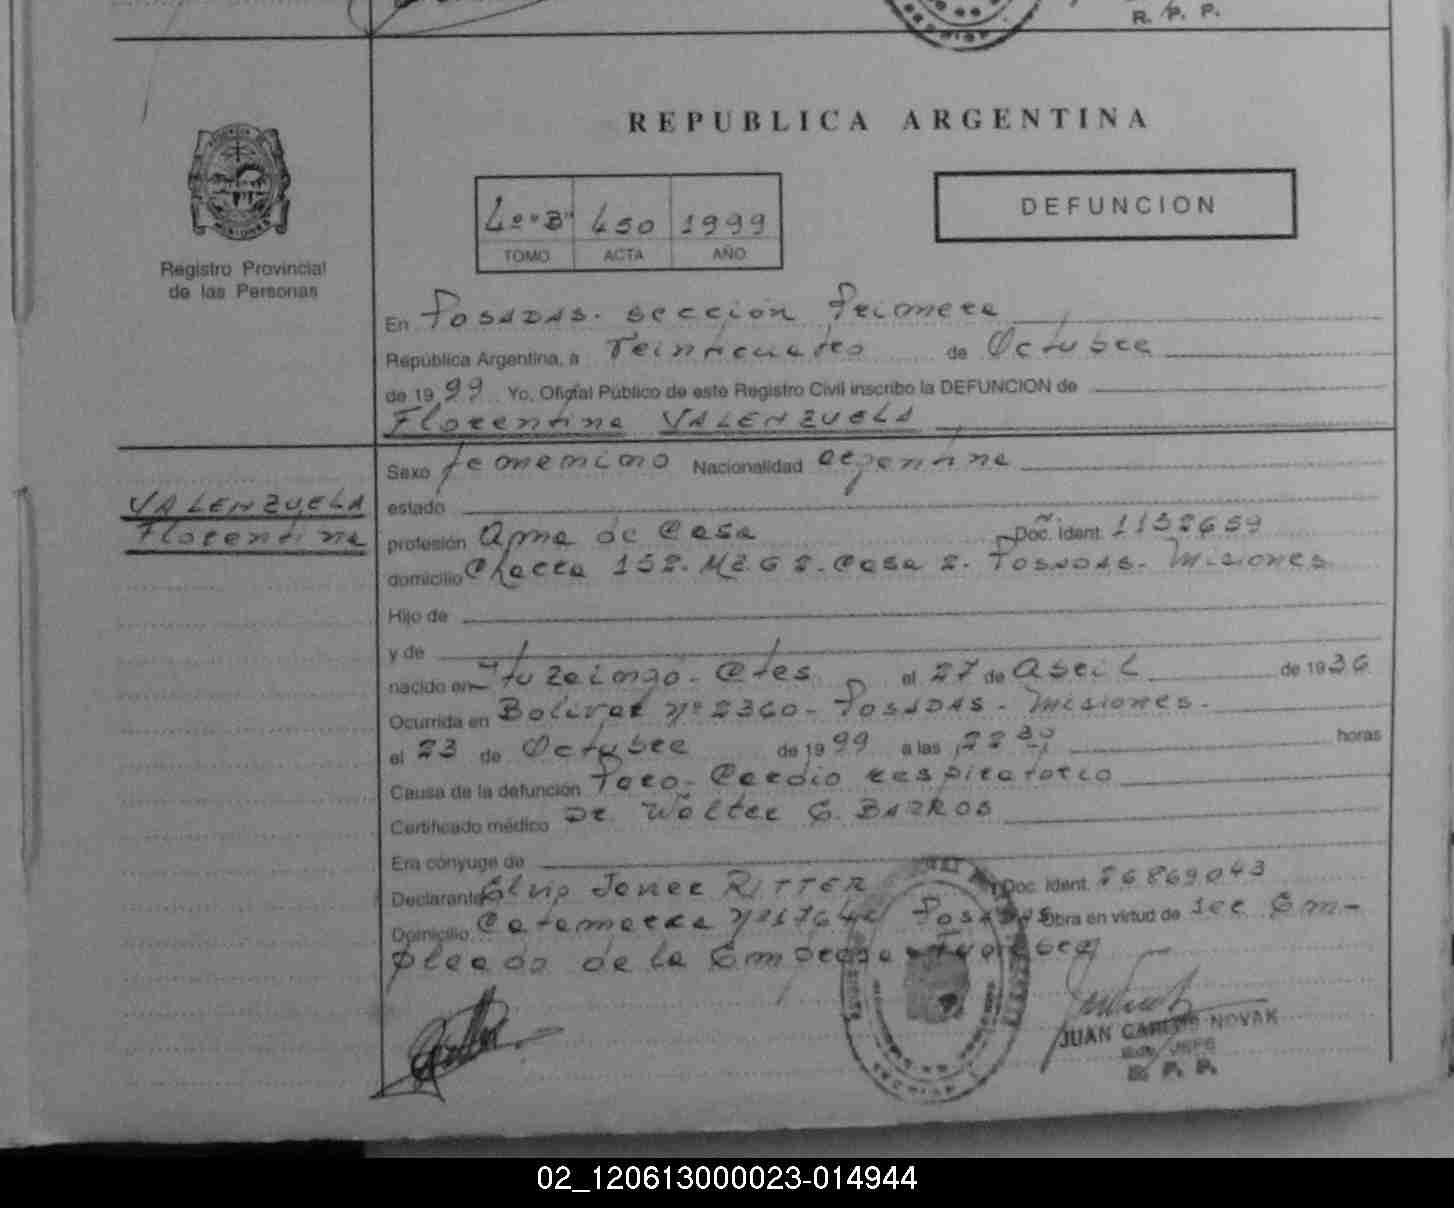 R. P. P.
REPUBLICA ARGENTINA
4º "B" 450 1999
TOMO ACTA AÑO
DEFUNCION
MISIONES
Registro Provincial
de las Personas
En Posadas. sección Primera
República Argentina, a Veinticuatro de Octubre
de 19 99 Yo, Oficial Público de este Registro Civil inscribo la DEFUNCION de
Florentina VALENZUELA
VALENZUELA
Florentina
Sexo femenino Nacionalidad argentina
estado
profesión Ama de Casa Doc. ident. 1132659
domicilio Chacra 152. Mz. G 2. Casa 2. Posadas. Misiones
Hijo de
y de
nacido en Ituzaingó - Ctes el 27 de Abril de 1936
Ocurrida en Bolivar nº 2360 - Posadas - Misiones.
el 23 de Octubre de 19 99 a las 22 30 horas
Causa de la defunción Paro Cardio respiratorio
Certificado médico Dr. Walter G. BARROS
Era cónyuge de
Declarante Elvio Javier RITTER Doc. ident. 26869043
Domicilio Catamarca nº 1764 Posadas Obra en virtud de ser Em-
pleado de la Empresa
JUAN CARLOS NOVAK
JEFE
R. P. P.
02_120613000023-014944